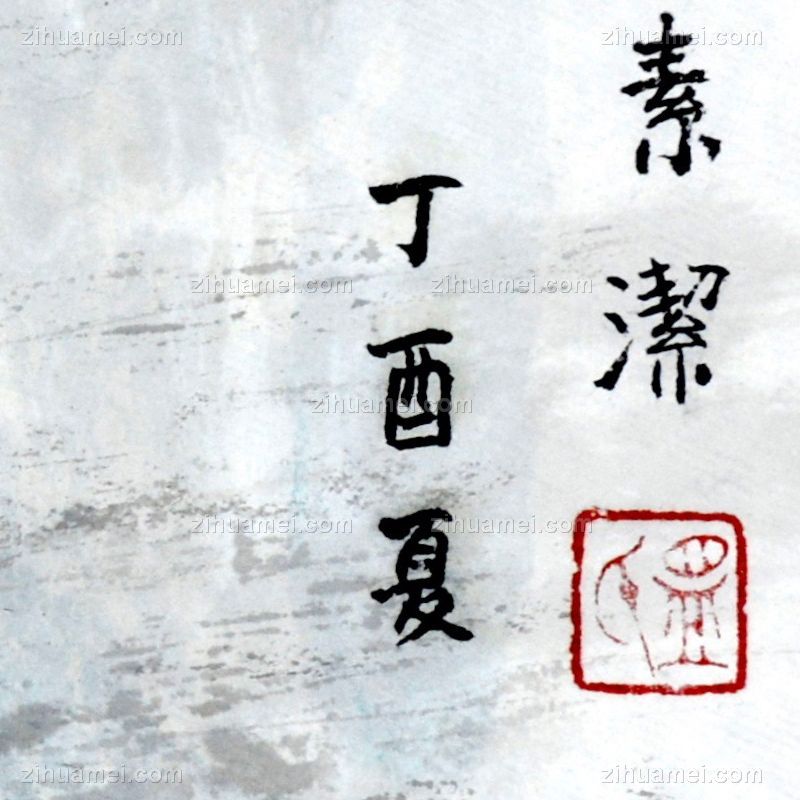 素潔
丁酉夏
zihuamei.com
zihuamei.com
zihuamei.com
zihuamei.com
zihuamei.com
zihuamei.com
zihuamei.com
zihuamei.com
zihuamei.com